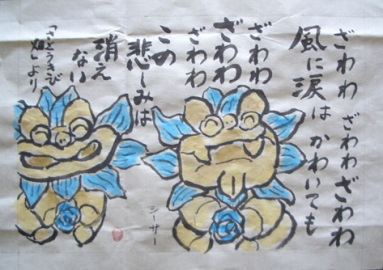 ざわわ ざわわ ざわわ
風に涙は かわいても
ざわわ
ざわわ
ざわわ
この
悲しみは
消え
ない
「さとうきび
畑」より
シーサー